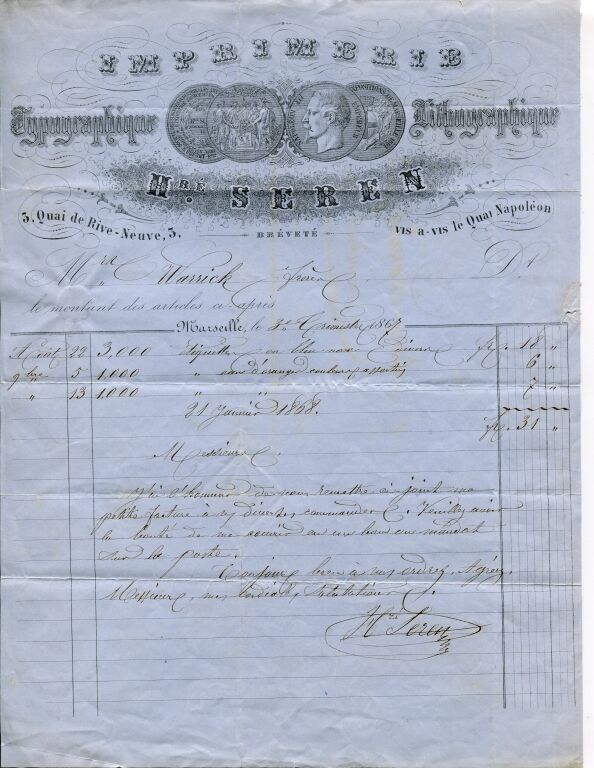 IMPRIMERIE
Typographique Lithographique
Hre SEREN
3, Quai de Rive-Neuve, 3. BRÉVETÉ vis a-vis le Quai Napoléon
Mrs Warrick frères Dt
le montant des articles ci après
Marseille, le 2e Trimestre 1867
Août 22 3,000 étiquettes en bleu noir fr. 18 "
9bre 5 1,000 " eau d'oranger couleurs assorties 6 "
" 13 1,000 " " 7 "
21 Janvier 1868. fr. 31 "
Messieurs,
J'ai l'honneur de vous remettre ci-joint ma
petite facture à vos diverses commandes. Veuillez avoir
la bonté de me couvrir en un bon ou mandat
sur la poste.
Toujours bien à vos ordres, Agréez,
Messieurs, mes cordiales salutations.
Hre Seren